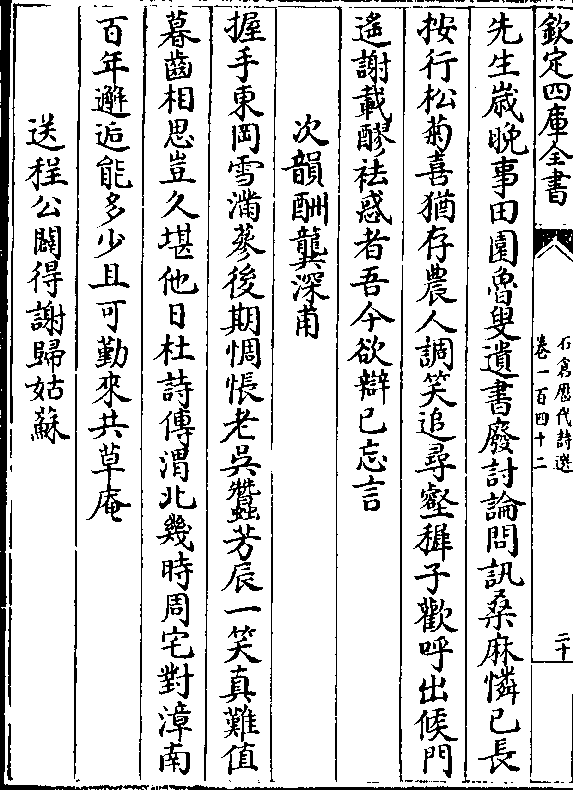 欽定四庫全書
石倉歷代詩選
卷一百四十二
二十
先生歲晚事田園魯叟遺書廢討論問訊桑麻憐已長
按行松菊喜猶存農人調笑追尋壑穉子歡呼出候門
遥謝載醪祛惑者吾今欲辯已忘言
次韻酬龔深甫
握手東岡雪滿篸後期惆悵老吳蠶芳辰一笑真難值
暮齒相思豈久堪他日杜詩傳渭北幾時周宅對漳南
百年邂逅能多少且可勤來共草庵
送程公闢得謝歸姑蘇